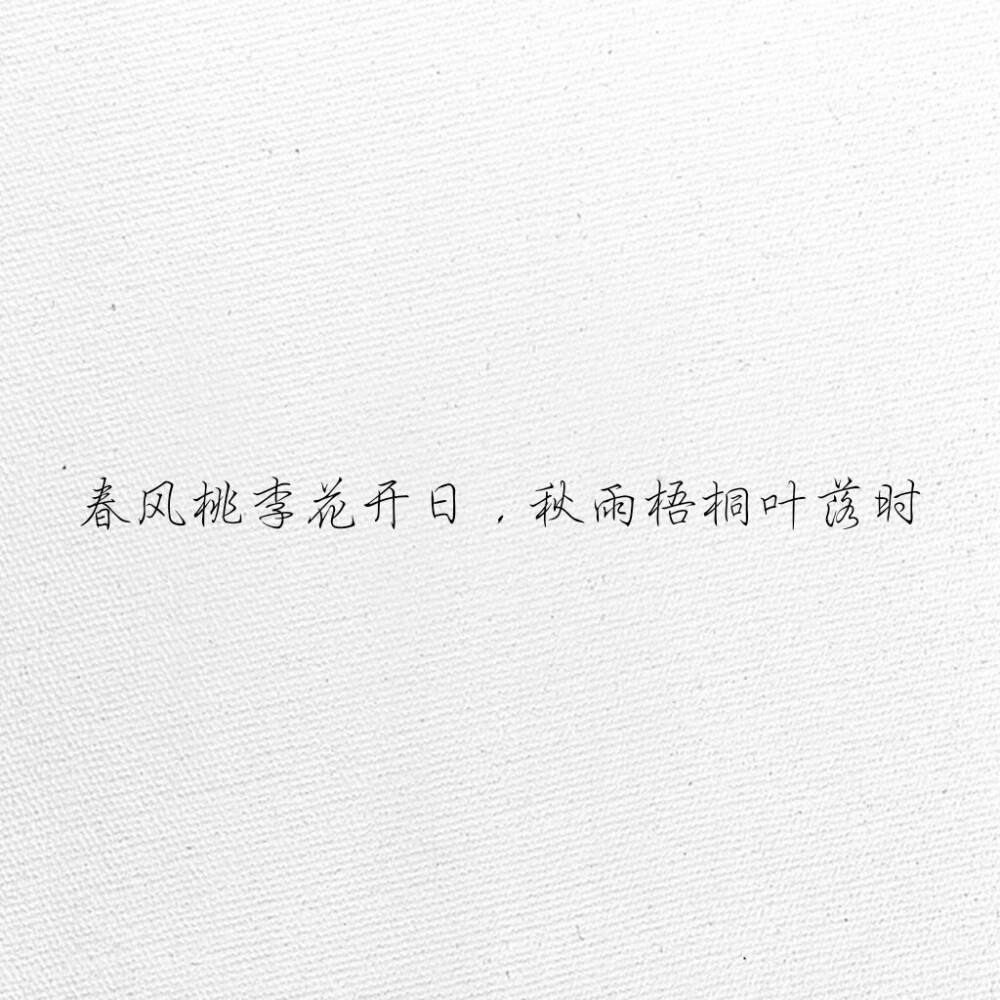 春风桃李花开日，秋雨梧桐叶落时